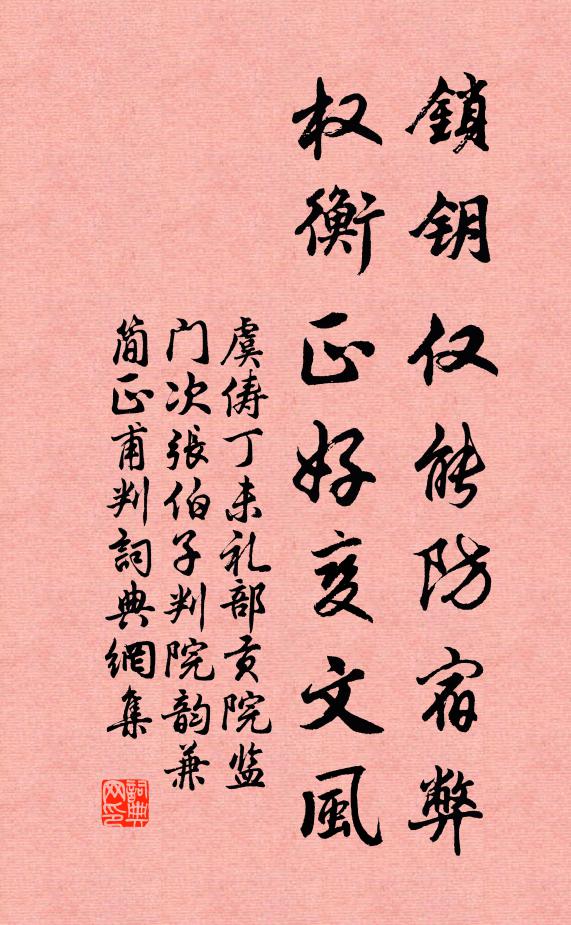 鎖钥仅能防宿弊
权衡正好变文風
虞俦丁未礼部贡院监
门次張伯子判院韵兼
简正甫判詞典網集
詞典网印